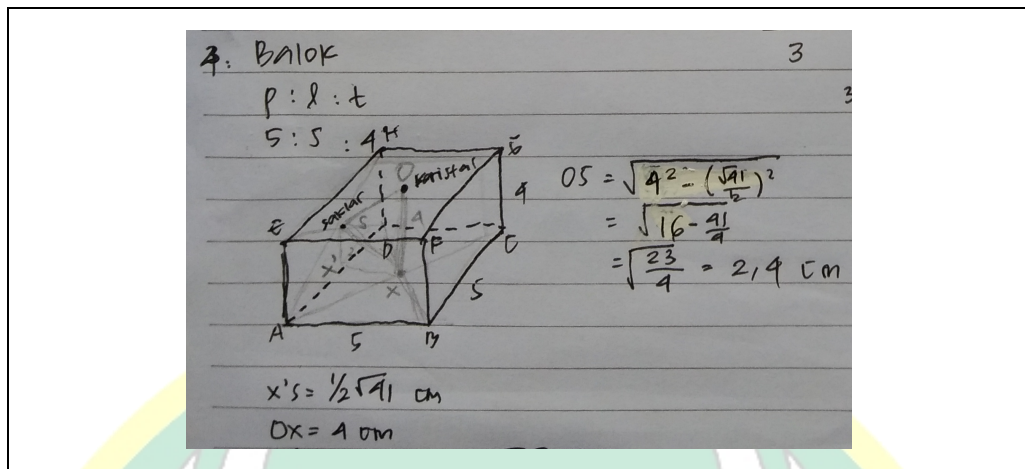 4. Balok
3
p : l : t
3
5 : 5 : 4
H
G
O
Keristal
saklar
S
4
4
E
D
F
C
X'
X
5
A
5
B
OS = √4² - (√41/2)²
= √16 - 41/4
= √23/4 = 2,4 cm
X's = 1/2 √41 cm
OX = 4 cm